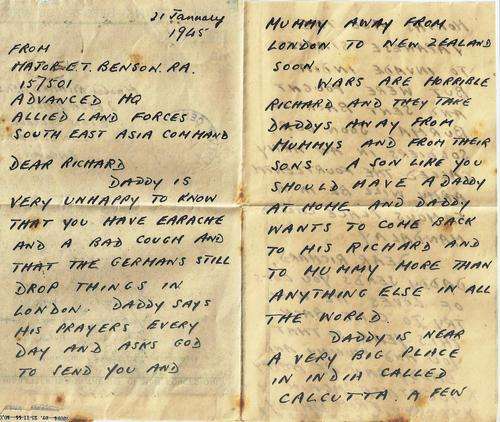 21 January
1945
FROM
MAJOR E.T. BENSON. RA.
157501
ADVANCED HQ
ALLIED LAND FORCES
SOUTH EAST ASIA COMMAND
DEAR RICHARD
DADDY IS
VERY UNHAPPY TO KNOW
THAT YOU HAVE EARACHE
AND A BAD COUGH AND
THAT THE GERMANS STILL
DROP THINGS IN
LONDON. DADDY SAYS
HIS PRAYERS EVERY
DAY AND ASKS GOD
TO SEND YOU AND
MUMMY AWAY FROM
LONDON TO NEW ZEALAND
SOON.
WARS ARE HORRIBLE
RICHARD AND THEY TAKE
DADDYS AWAY FROM
MUMMYS AND FROM THEIR
SONS. A SON LIKE YOU
SHOULD HAVE A DADDY
AT HOME AND DADDY
WANTS TO COME BACK
TO HIS RICHARD AND
TO MUMMY MORE THAN
ANYTHING ELSE IN ALL
THE WORLD.
DADDY IS NEAR
A VERY BIG PLACE
IN INDIA CALLED
CALCUTTA. A FEW